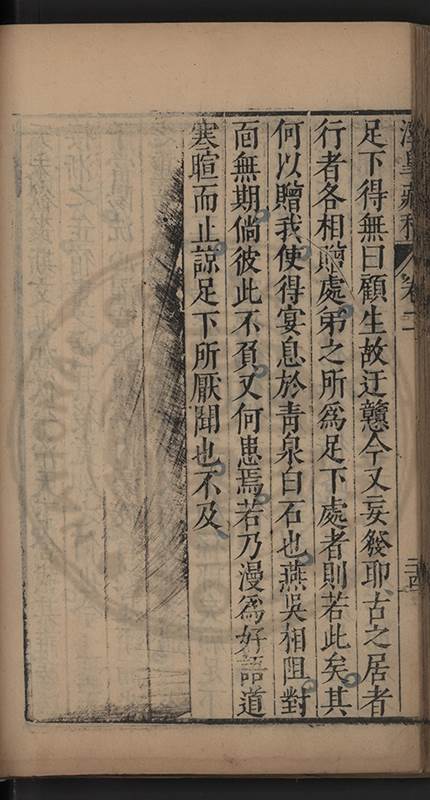 足下得無曰顧生故迂戇今又妄發耶古之居者
行者各相贈處弟之所爲足下處者則若此矣其
何以贈我使得宴息於青泉白石也燕吳相阻對
面無期倘彼此不負又何患焉若乃漫爲好語道
寒暄而止諒足下所厭聞也不及